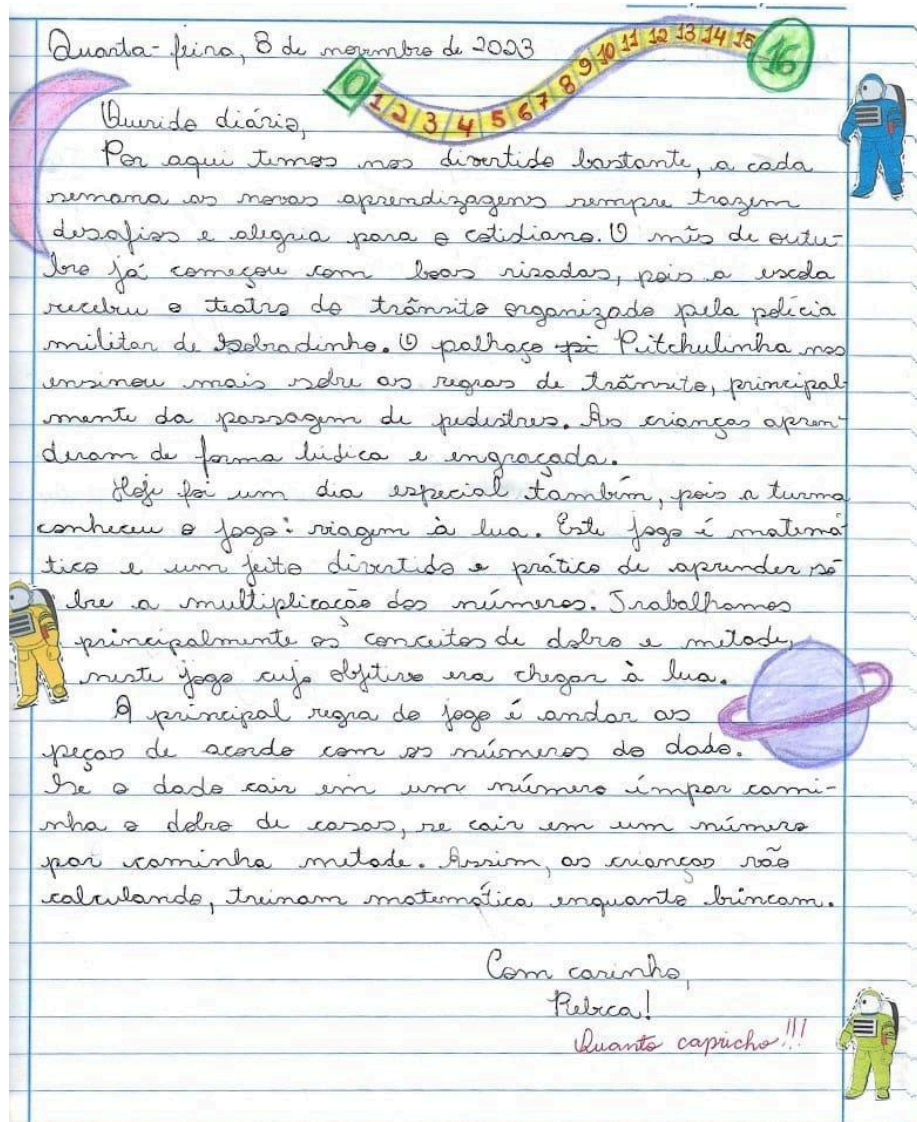 Quarta-feira, 8 de novembro de 2023
0 1 2 3 4 5 6 7 8 9 10 11 12 13 14 15 16
Querido diário,
Por aqui temos nos divertido bastante, a cada
semana as novas aprendizagens sempre trazem
desafios e alegria para o cotidiano. O mês de outu-
bro já começou com boas risadas, pois a escola
recebeu o teatro do trânsito organizado pela polícia
militar de Sobradinho. O palhaço pi Pitchulinha nos
ensinou mais sobre as regras de trânsito, principal-
mente da passagem de pedestres. As crianças apren-
deram de forma lúdica e engraçada.
Hoje foi um dia especial também, pois a turma
conheceu o jogo: viagem à lua. Este jogo é matemá-
tico e um jeito divertido e prático de aprender so-
bre a multiplicação dos números. Trabalhamos
principalmente os conceitos de dobro e metade,
neste jogo cujo objetivo era chegar à lua.
A principal regra do jogo é andar as
peças de acordo com os números do dado.
Se o dado cair em um número ímpar cami-
nha o dobro de casas, se cair em um número
par caminha metade. Assim, as crianças vão
calculando, treinam matemática enquanto brincam.
Com carinho,
Rebeca!
Quanto capricho!!!